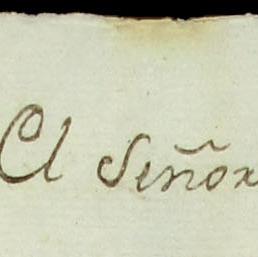 El Señor